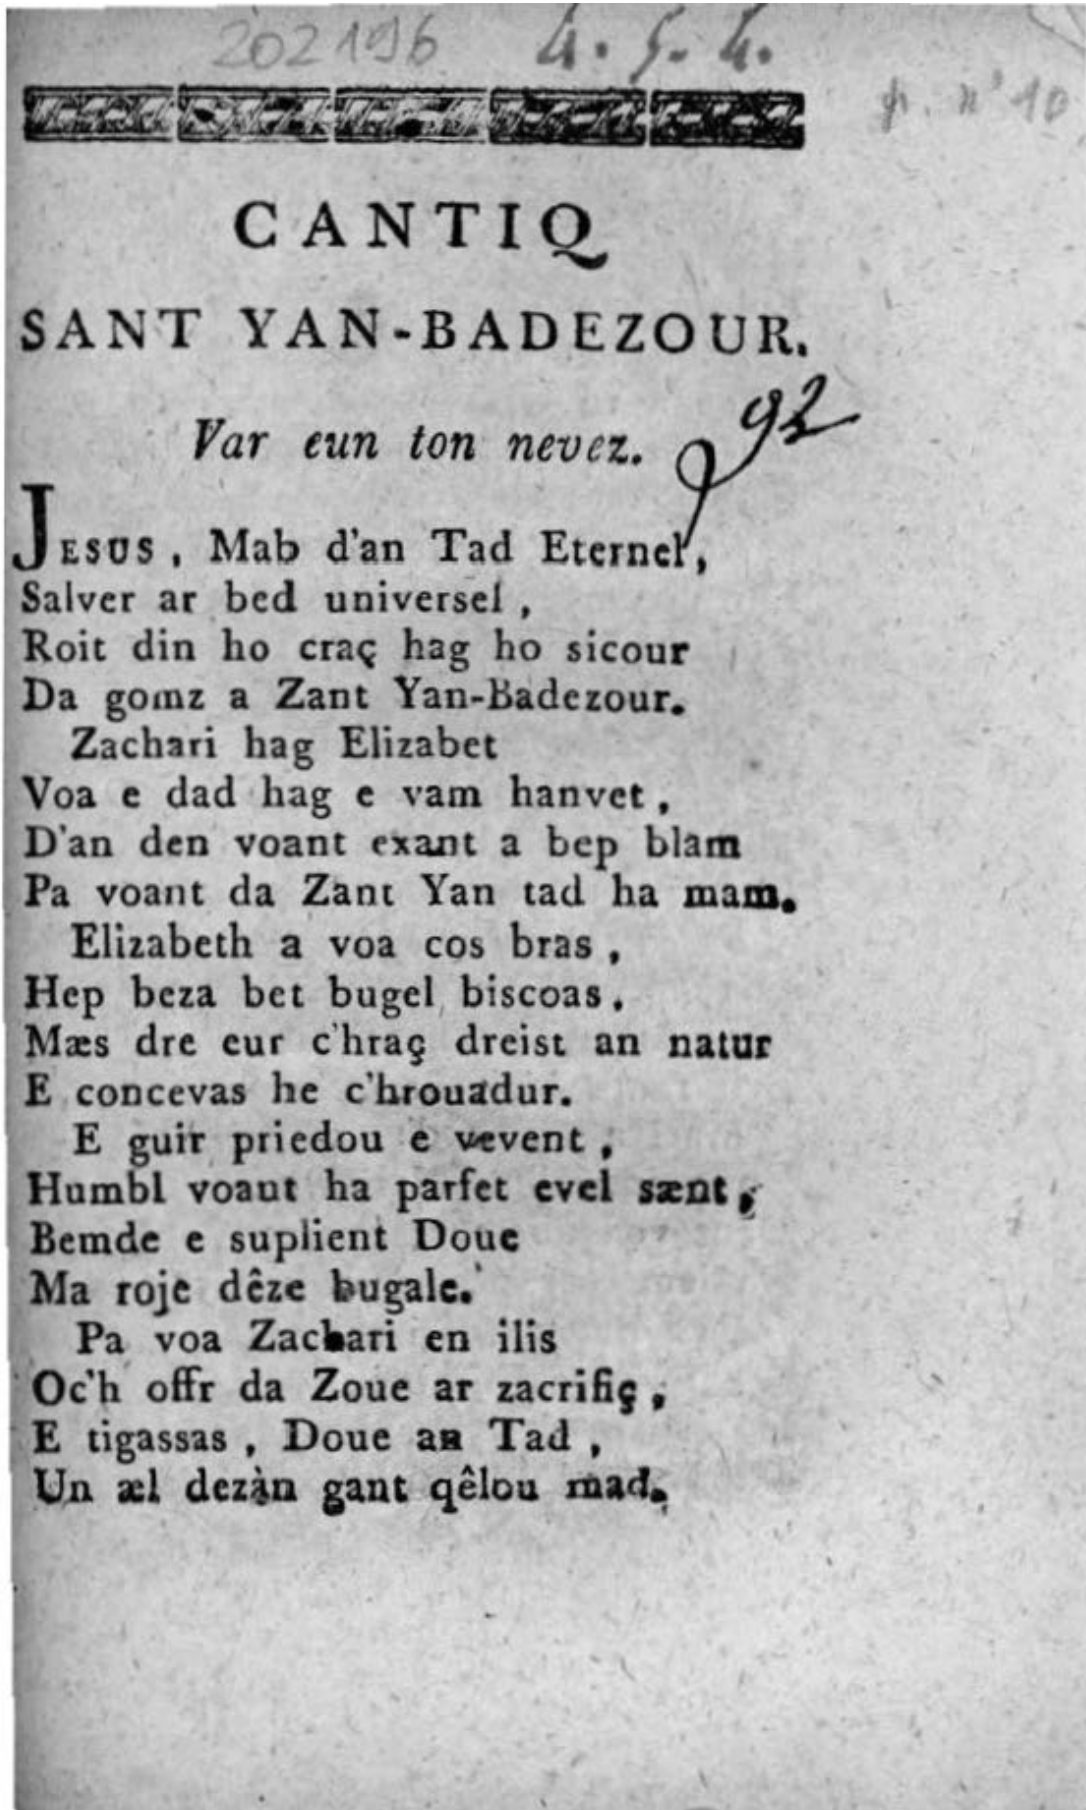 202196 4. 5. 4.
p. n° 10
CANTIQ
SANT YAN-BADEZOUR.
Var eun ton nevez.
92
JESUS, Mab d'an Tad Eternel,
Salver ar bed universel,
Roit din ho craç hag ho sicour
Da gomz a Zant Yan-Badezour.
Zachari hag Elizabet
Voa e dad hag e vam hanvet,
D'an den voant exant a bep blam
Pa voant da Zant Yan tad ha mam.
Elizabeth a voa cos bras,
Hep beza bet bugel biscoas.
Mæs dre eur c'hraç dreist an natur
E concevas he c'hrouadur.
E guir priedou e vevent,
Humbl voant ha parfet evel sænt,
Bemde e suplient Doue
Ma roje dêze bugale.
Pa voa Zachari en ilis
Oc'h offr da Zoue ar zacrifiç,
E tigassas, Doue an Tad,
Un æl dezàn gant qêlou mad.